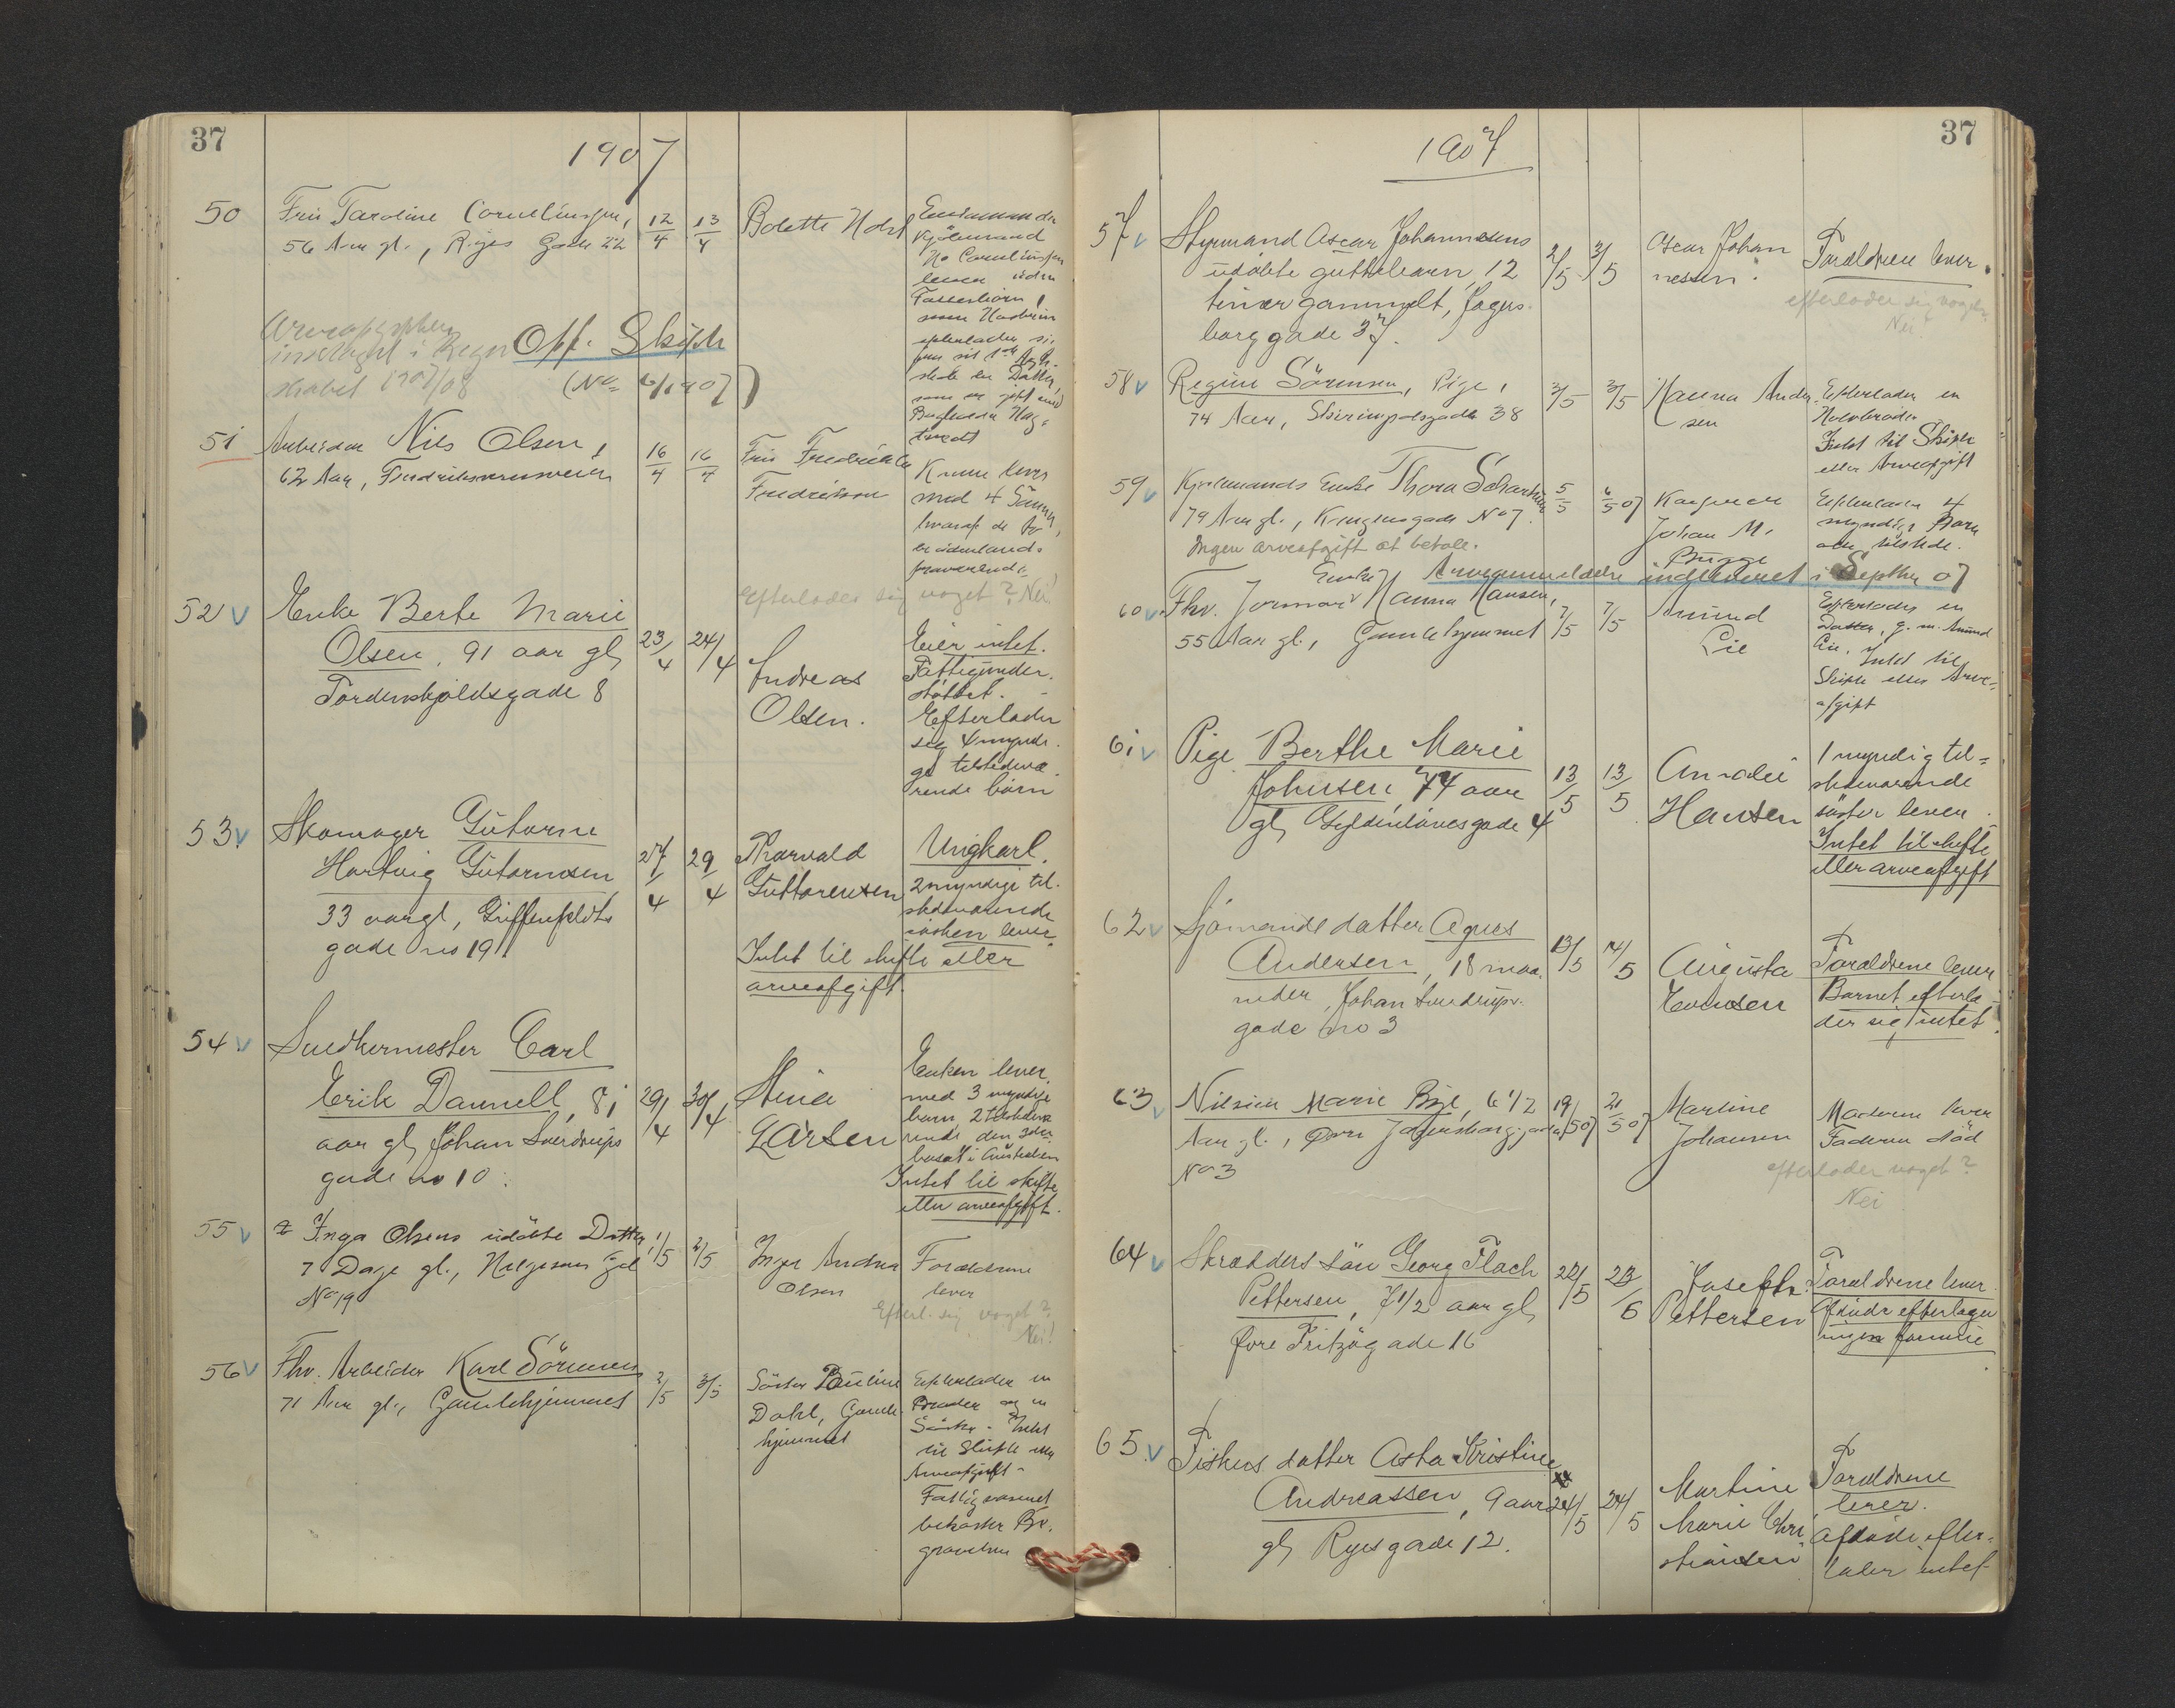 37
1907
50
Fru Taroline Corneliussen,
56 Aar gl., Ryes Gade 22
12/4
13/4
Bolette Holst
Enkemanden
No Corneliussen
lever uden
Fællesbørn,
Arveafgiften
i Regn
skabet 1907/08
Off. Skifte
(No 6/1907)
som er gift med
51
Arbeider Nils Olsen,
62 Aar, Fredriksværnsveien
16/4
16/4
Fru Fredrikke
Fredriksen
Konen lever
med 4 Sønner,
hvoraf de to
er udenlands
fraværende
Efterlader sig noget? Nei!
52
Enke Berte Marie
Olsen, 91 aar gl,
Tordenskjoldsgade 8
23/4
24/4
Andreas
Olsen.
Eier intet.
Fattigunder-
støttet.
Efterlader
sig 4 myndi-
ge tilstedevæ-
rende børn
53
Skomager Gutorm
Hartvig Gutormsen
33 aar gl, Griffenfeldts
gade no 19
27/4
29/4
Thorvald
Guttormsen
Ungkarl.
2 myndige til-
stedeværende
søsken lever.
Intet til skifte eller
arveafgift.
54
Snedkermester Carl
Erik Dannell, 81
aar gl, Johan Sverdrups
gade no 10.
29/4
30/4
Stina
Larsen
Enken lever
med 3 myndige
børn, 2 tilstedevæ-
rende, den 3die
bosat i Australien
Intet til skifte
eller arveafgift.
55
Inga Olsens udøbte Datter,
7 Dage gl., Helgesens Gd
No 19
1/5
2/5
Inger Andrea
Olsen
Forældrene
lever
Efterl. sig noget?
Nei!
56
Fhv. Arbeider Karl Sørensen
71 Aar gl., Gamlehjemmet
2/5
3/5
Søster Pauline
Dahl, Gamle-
hjemmet
Efterlader en
Broder og en
Søster. Intet
til Skifte eller
Arveafgift.
Fattigvæsenet
bekoster Be-
gravelsen
37
1907
57
Styrmand Oscar Johannesens
udøbte guttebarn, 12
timer gammelt, Jegers-
borggade 37.
2/5
3/5
Oscar Johan-
nessen.
Forældrene lever.
efterlader sig noget?
Nei!
58
Regine Sörensen, Pige,
74 Aar, Skiringssalsgade 38
3/5
3/5
Hanna Ander-
sen
Efterlader en
Halvbroder
Intet til Skifte
eller Arveafgift
59
Kjøbmands Enke Thora Scharning
79 Aar gl., Kongensgade No 7.
5/5
6/5 07
Kaptein
Johan M.
Brügge
Efterlader 4
myndige Børn
alle tilstede.
Ingen arveafgift at betale.
Arveanmeldelse indleveret i Septbr 07
60
Enke
Fhv. Jormor Hanna Hansen,
55 Aar gl., Gamlehjemmet
7/5
7/5
Amund
Lie
Efterlader en
Datter, g. m. Amund
Lie. Intet til
Skifte eller Arve-
afgift
61
Pige Berthe Marie
Johnsen, 74 aar
gl, Gyldenløvesgade 4
13/5
13/5
Amalie
Hansen
1 myndig til-
stedeværende
søster lever.
Intet til skifte
eller arveafgift
62
Sjømands datter Agnes
Andersen, 18 maa-
neder, Johan Sverdrups-
gade no 3
13/5
14/5
Augusta
Evensen
Forældrene lever
Barnet efterla-
der sig intet.
63
Marie Bye, 6 1/2
Aar gl., Øvre Jegersborggade
No 3
19/5 07
21/5 07
Martine
Johansen
Moderen lever
Faderen død
efterlader noget?
Nei
64
Skrædders søn Georg Flach
Pettersen, 7 1/2 aar gl,
Øvre Fritzøgade 16
22/5
23/5
Joseph
Pettersen
Forældrene lever.
Afdøde efterlader
ingen formue
65
Fiskers datter Asta Kristine
Andreassen, 9 aar
gl, Ryesgade 12.
24/5
24/5
Martine
Marie Chri-
stiansen
Forældrene
lever.
Afdøde efter-
lader intet